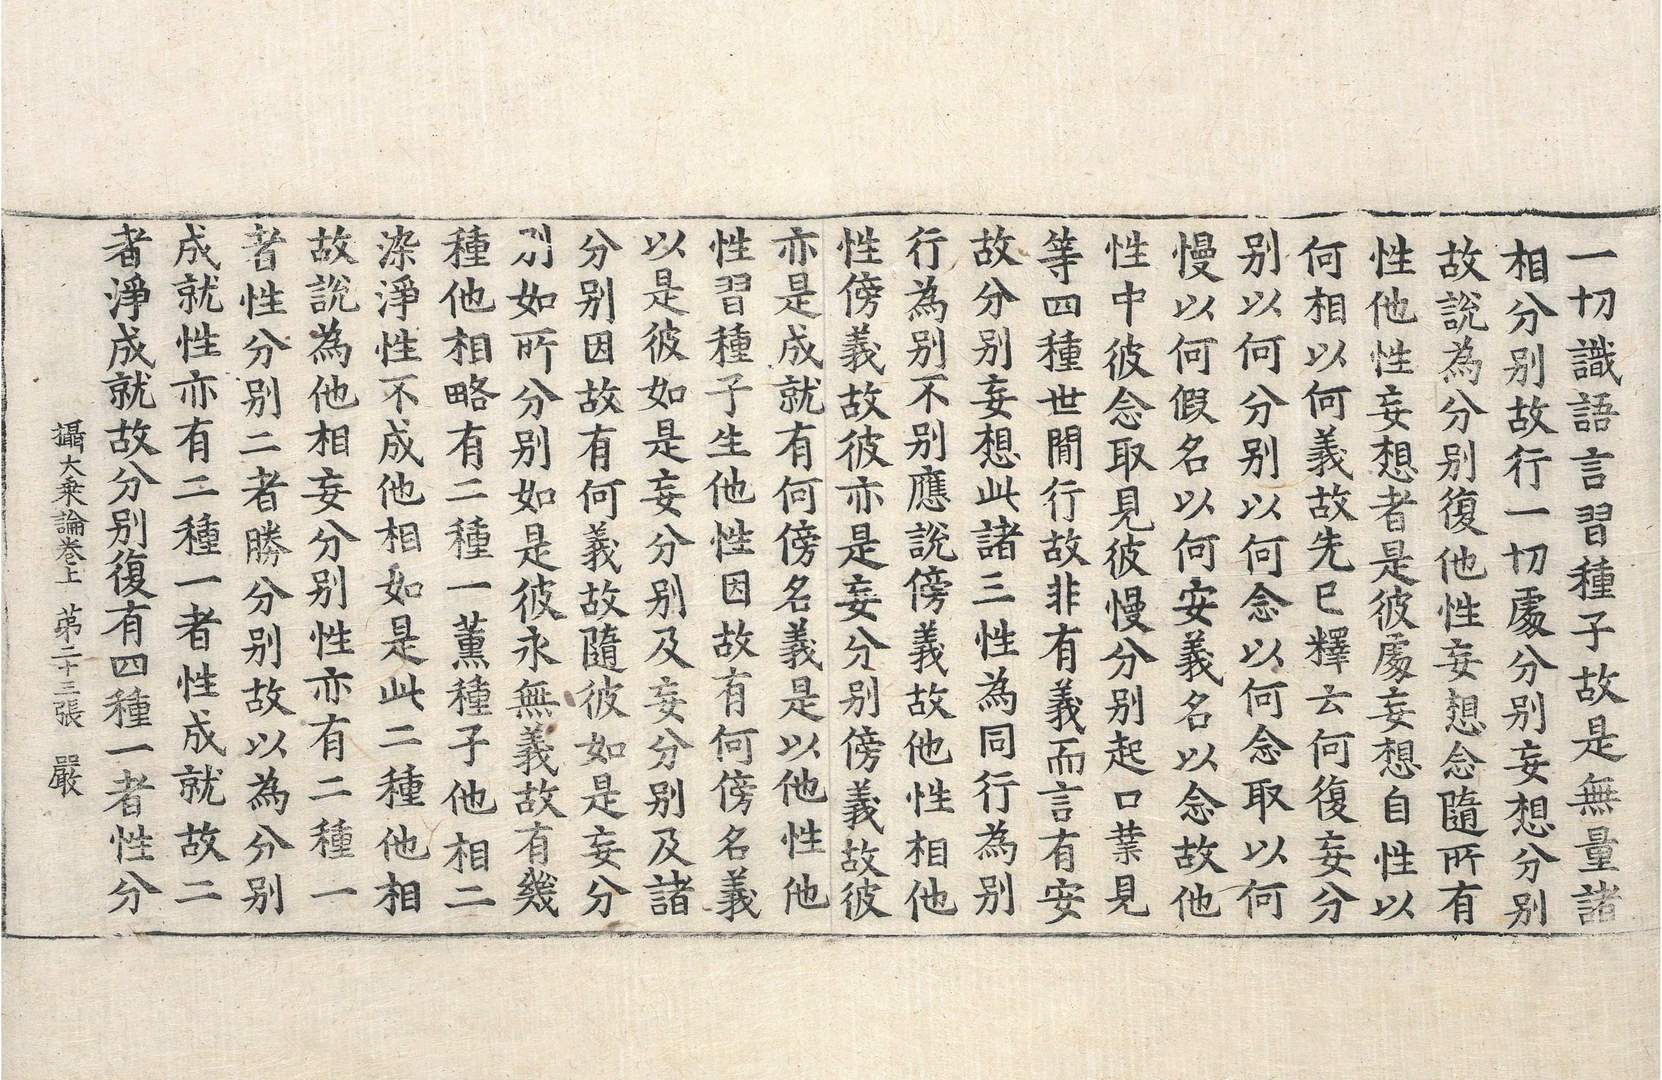 一切識語言習種子故是無量諸
相分別故行一切處分別妄想分別
故說為分別復他性妄想念隨所有
性他性妄想者是彼處妄想自性以
何相以何義故先已釋云何復妄分
別以何分別以何念以何念取以何
慢以何假名以何安義名以念故他
性中彼念取見彼慢分別起口業見
等四種世間行故非有義而言有安
故分別妄想此諸三性為同行為別
行為別不別應說傍義故他性相他
性傍義故彼亦是妄分別傍義故彼
亦是成就有何傍名義是以他性他
性習種子生他性因故有何傍名義
以是彼如是妄分別及妄分別及諸
分別因故有何義故隨彼如是妄分
別如所分別如是彼永無義故有幾
種他相略有二種一薰種子他相二
染淨性不成他相如是此二種他相
故說為他相妄分別性亦有二種一
者性分別二者勝分別故以為分別
成就性亦有二種一者性成就故二
者淨成就故分別復有四種一者性分
攝大乘論卷上 第二十三張 嚴